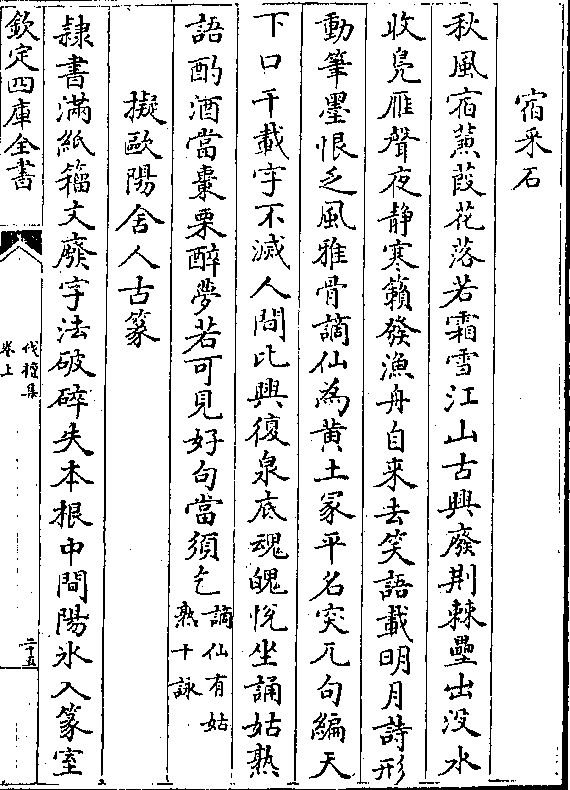 宿采石
秋風宿蒹葭花落若霜雪江山古興廢荆棘壘出没水
收鳧雁聲夜静寒籟發漁舟自来去笑語載明月詩形
動筆墨恨乏風雅骨謫仙為黄土冢平名突兀句編天
下口千載字不滅人間比興復泉底魂魄恱坐誦姑熟
語酌酒當棗栗醉夢若可見好句當須乞謫仙有姑
熟十詠
擬歐陽舍人古篆
隷書滿紙籕文廢字法破碎失本根中間陽氷入篆室
欽定四庫全書
伐檀集
卷上
二十五